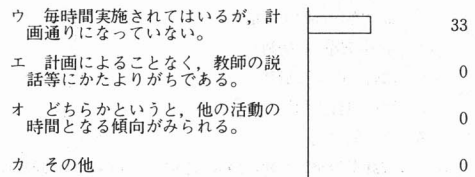 ウ 毎時間実施されてはいるが，計
画通りになっていない。
33
エ 計画によることなく，教師の説
話等にかたよりがちである。
0
オ どちらかというと，他の活動の
時間となる傾向がみられる。
0
カ その他
0